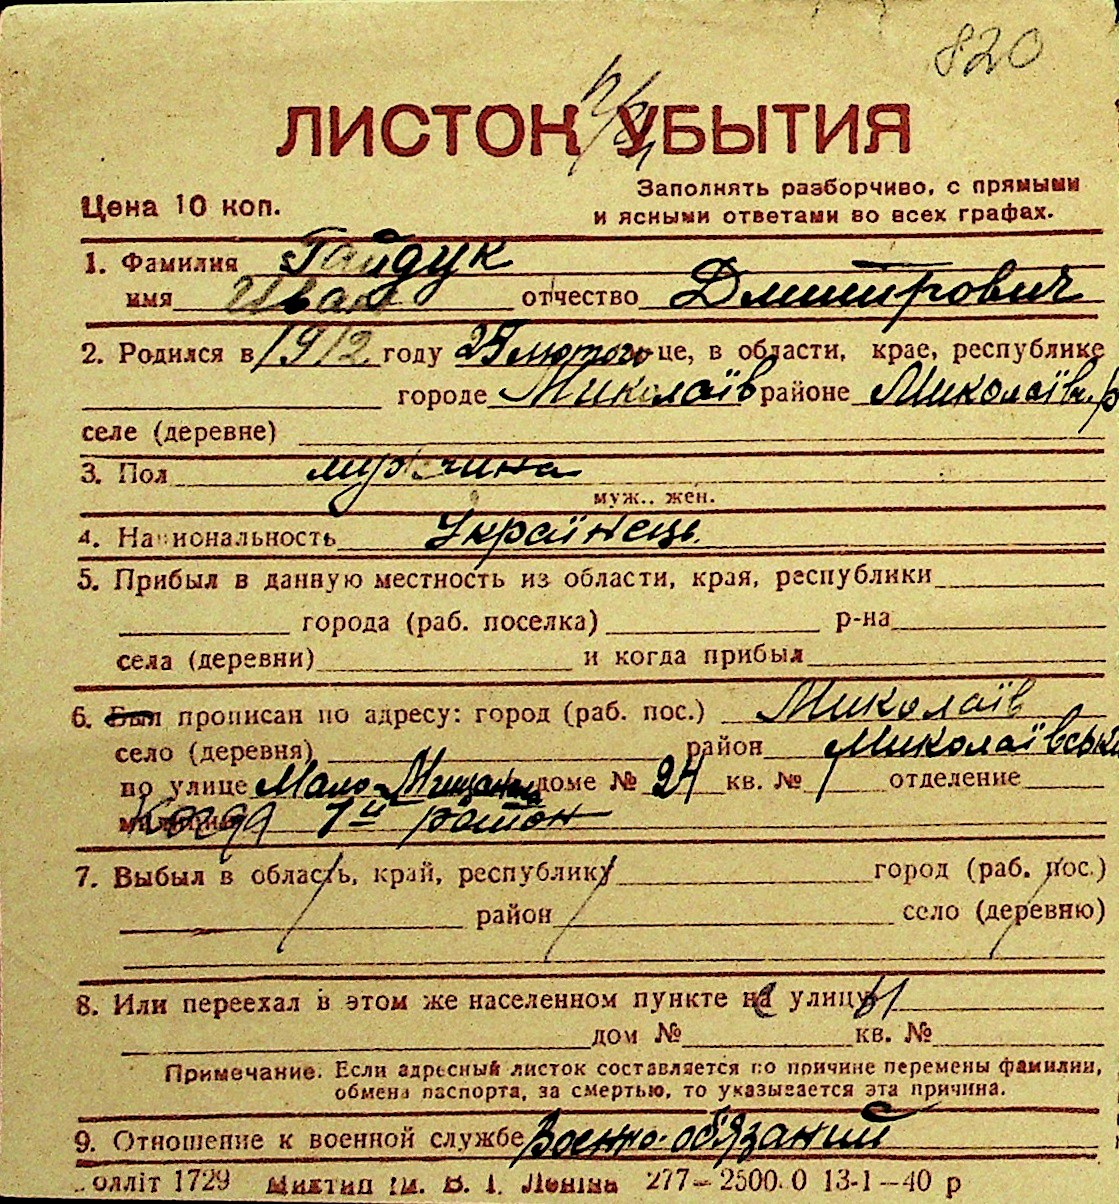 820
ЛИСТОК УБЫТИЯ
Цена 10 коп.
Заполнять разборчиво, с прямыми
и ясными ответами во всех графах.
1. Фамилия Гайдук
имя Иван отчество Дмитрович
2. Родился в 1912 году 25 лютого це, в области, крае, республике
городе Миколаїв районе Миколаївк. р
селе (деревне)
3. Пол мужчина
муж.. жен.
4. Национальность Українець.
5. Прибыл в данную местность из области, края, республики
города (раб. поселка) р-на
села (деревни) и когда прибыл
6. Был прописан по адресу: город (раб. пос.) Миколаїв
село (деревня) район Миколаївськ
по улице Мало-Мещанск доме № 24 кв. № отделение
милиции 7й район
7. Выбыл в область, край, республику город (раб. пос.)
район село (деревню)
8. Или переехал в этом же населенном пункте на улицу
дом № кв. №
Примечание. Если адресный листок составляется по причине перемены фамилии,
обмена паспорта, за смертью, то указывается эта причина.
9. Отношение к военной службе Военно-обʼязаний
олліт 1729 Миктип ім. В. І. Леніна 277—2500.0 13-1-40 р